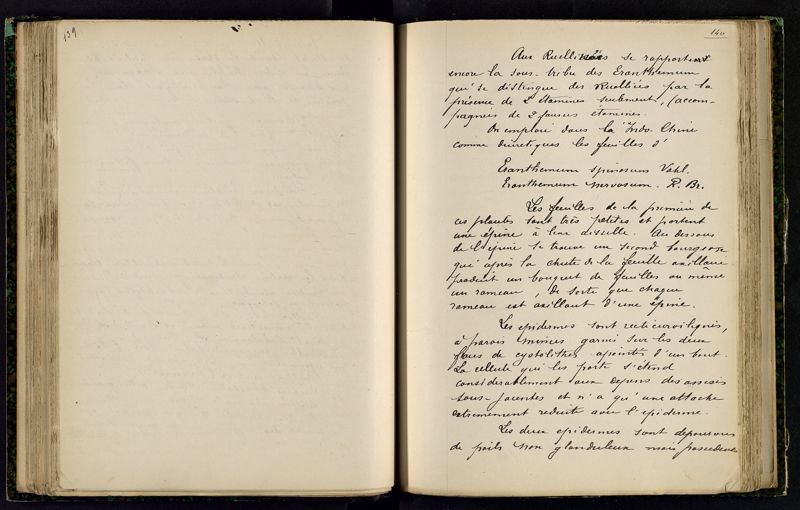 139
140
Aux Ruelliées se rapportent
encore la sous-tribu des Eranthemum
qui se distingue des Ruelliées par la
présence de 2 étamines seulement, (accom-
pagnées de 2 fausses étamines.
On emploie dans la Indo. Chine
comme diurétiques les feuilles d'
Eranthemum spinosum Vahl.
Eranthemum nervosum. R. Br.
Les feuilles de la première de
ces plantes sont très petites et portent
une épine à leur aisselle. Au dessous
de l'épine se trouve un second bourgeon
qui après la chute de la feuille axillaire
produit un bouquet de feuilles ou même
un rameau, de sorte que chaque
rameau est axillant d'une épine.
Les epidermes sont recticurvilignes,
à parois minces garni sur les deux
faces de cystolithes apointés d'un bout.
La cellule qui les porte s'étend
considérablement aux depens des assises
sous-jacentes et n'a qu'une attache
extremement reduite avec l'epiderme.
Les deux epidermes sont depourvus
de poils non glanduleux mais possedent